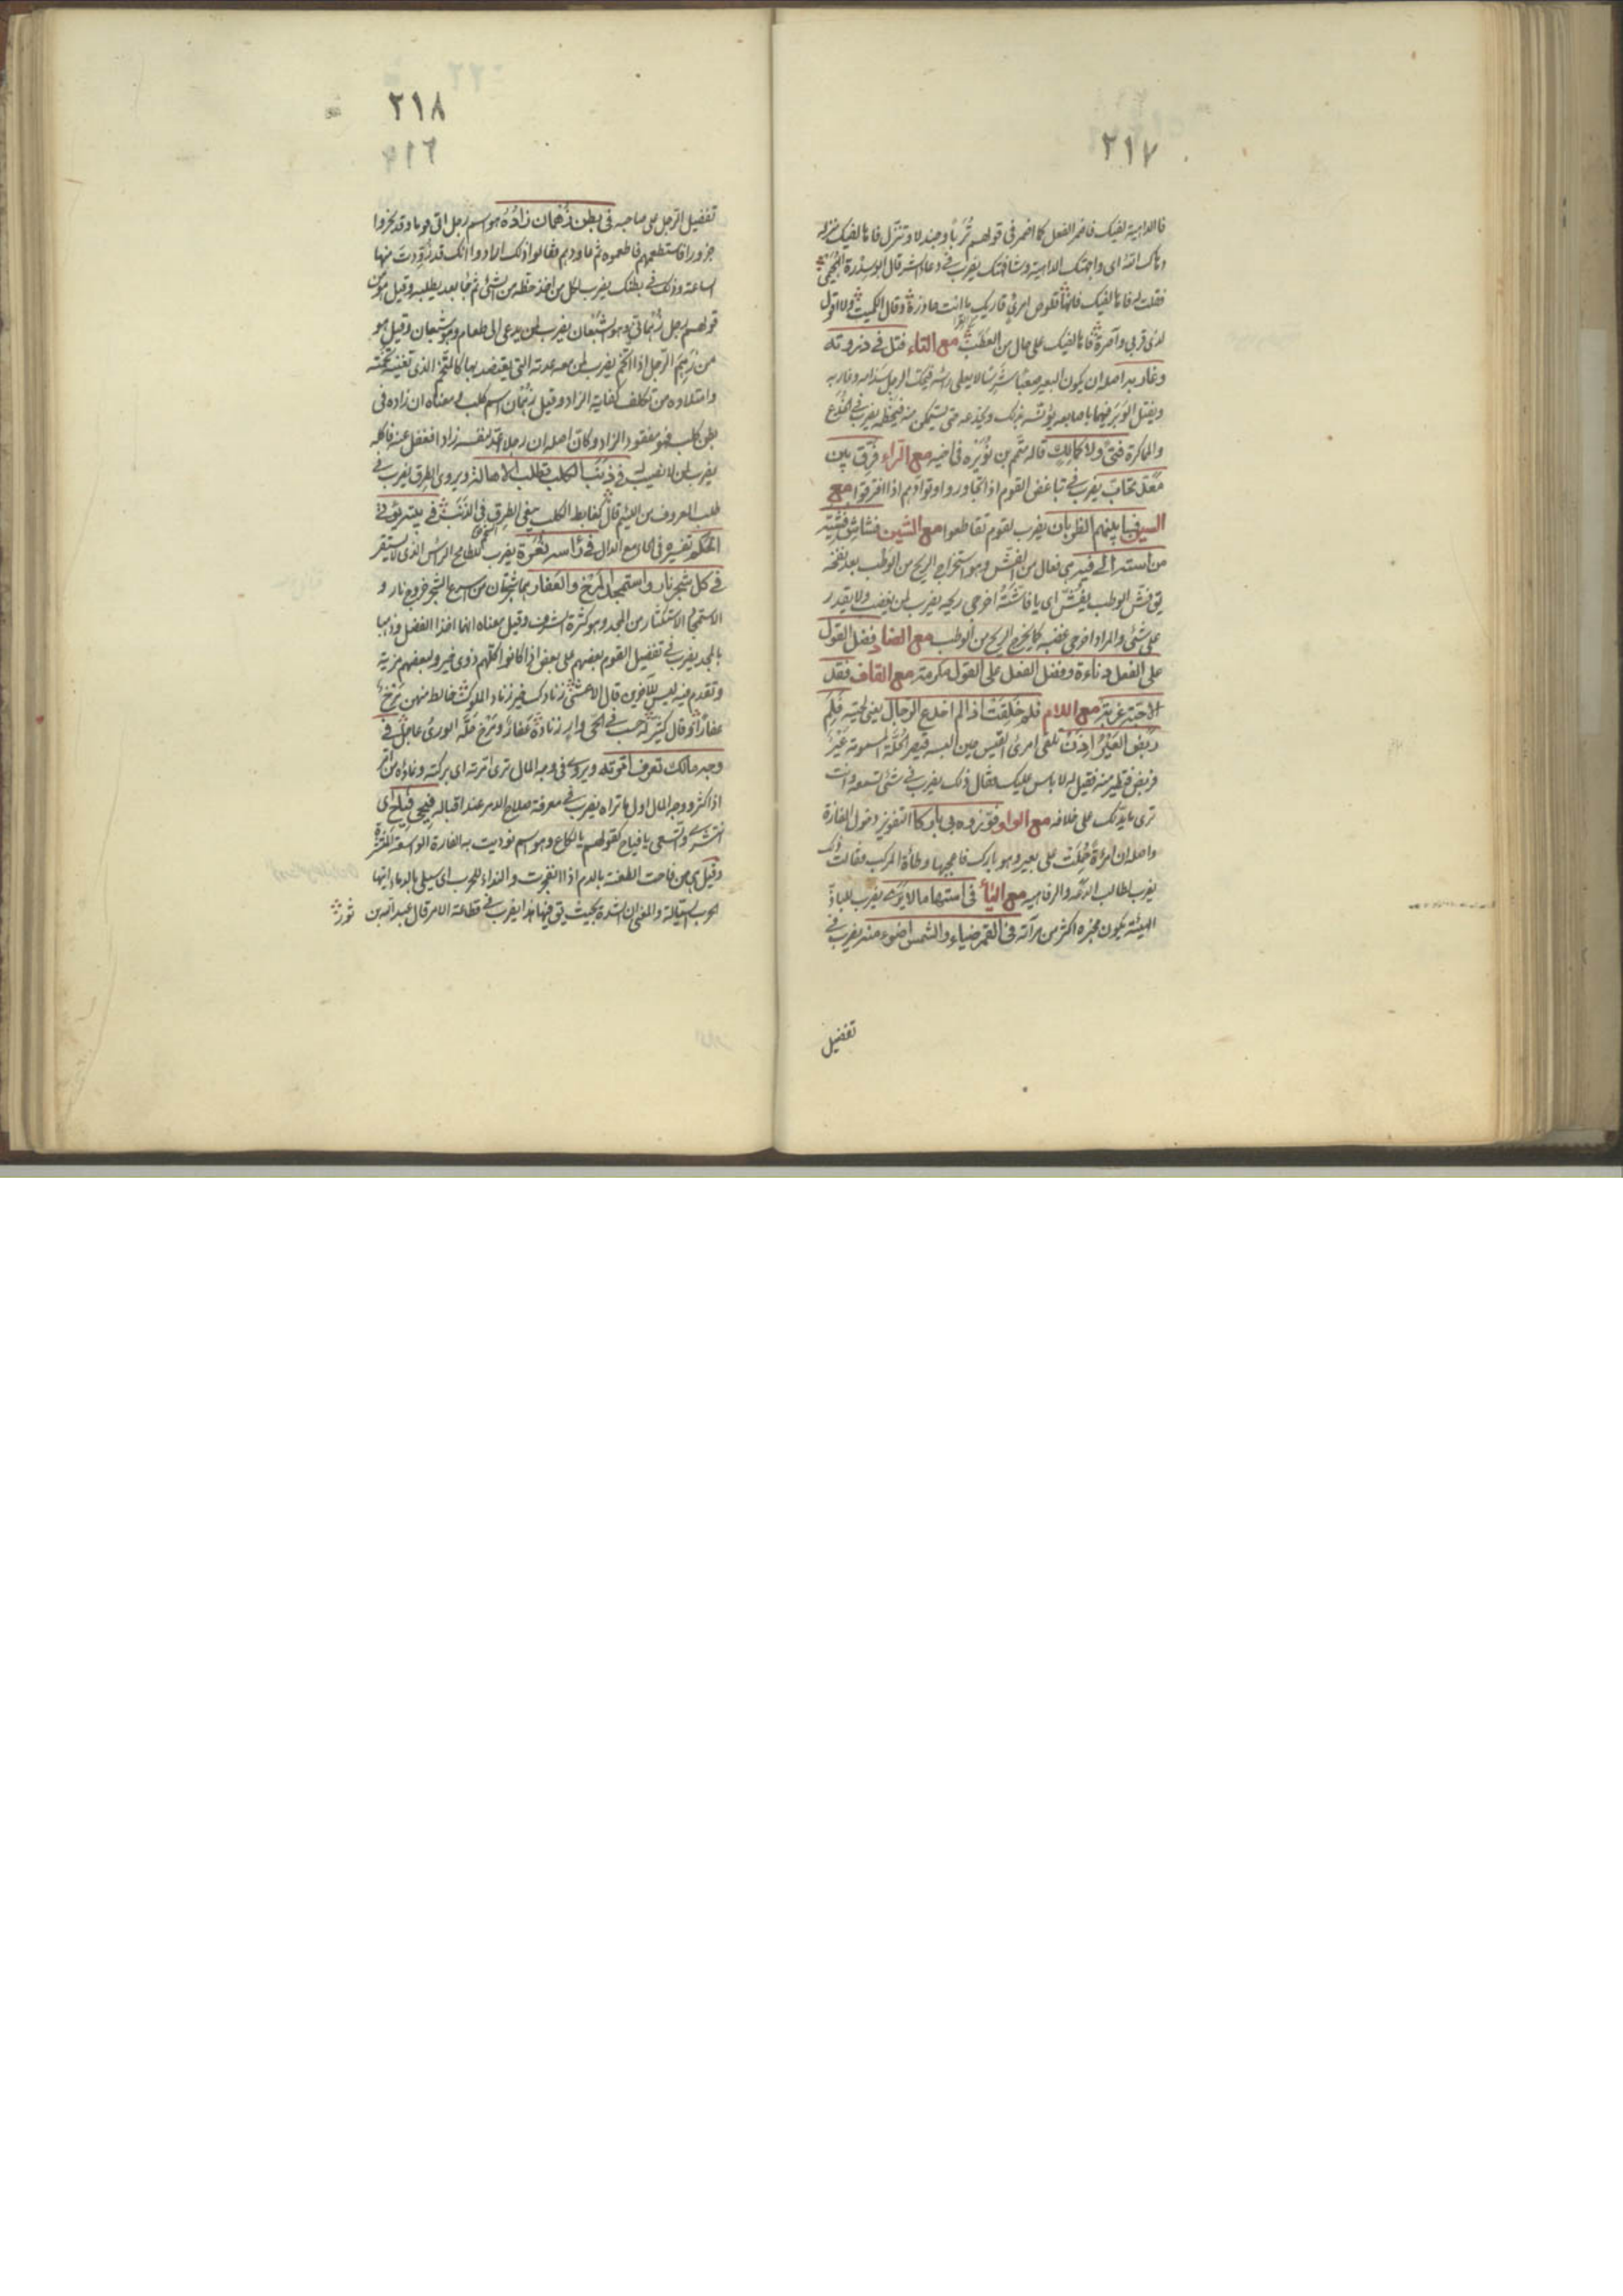 ٢١٧
فا الداهية لفيك فاضمر الفعل كما اضمر فى قولهم تُربا وجندلا وتنزل فاها لفيك منزلة
دهاك الله اى واجهتك الداهية وشافهتك يضرب فى دعاء الشر قال ابو سدرة الهجيمى
فقلت له فاها لفيك فانها قلوص امرئ قاريك ما انت حاذره وقال الكميت ولا اقول
لذى قربى وآصرة فاها لفيك على حال من العطب مع التاء فتل فى ذروته
وغاربه اصله ان يكون البعير صعبا شرسا لا يعطى راسه فيحك الرجل سنامه وغاربه
ويفتل الوبر فيهما باصابعه يؤنسه بذلك ويخدعه حتى يتمكن منه فيخطمه يضرب فى الخداع
والماكرة فتى ولا كمالك قاله متمم بن نويره فى اخيه مع الراء فرق بين
معد تحابّ يضرب فى تباغض القوم اذا تجاوروا وتوادهم اذا افترقوا مع
السين فسا بينهم الظربان يضرب لقوم تقاطعوا مع الشين فشاش فشيه
من استه الى فيه هى فعال من الفش وهو استخراج الريح من الوطب بعد نفخه
يق فش الوطب يفش اى يا فاشة اخرجى ريحه يضرب لمن يغضب ولا يقدر
على شئ والمراد اخرجى غضبه كما يخرج الريح من الوطب مع الضاد فضل القول
على الفعل دناءة وفضل الفعل على القول مكرمة مع القاف فقد
الاحبة غربة مع اللام فلم خلقت اذا لم اخدع الرجال يعنى لحيته فلم
ربض العير اذن
فربض فتطير منه فقيل له لا باس عليك فقال ذلك يضرب فى شئ تسمعه وانت
ترى ما يدلك على خلافه مع الواو فوّزوه بى بارك التفويز دخول المفازة
واصله ان امرأة حُمِلَت على بعير وهو بارك فاعجبها وطأة المركب فقالت ذلك
يضرب لطالب الدعة والرفاهيه مع الياء فى استها ما لا يرى يضرب للباذّ
الهيئة يكون مخبره اكثر من مرآته فى القمر ضياء والشمس اضوء منه يضرب فى
تفضيل
٢١٨
٢١٦
تفضيل الرجل على صاحبه فى بطن زهمان زاده هو اسم رجل اتى قوما وقد نحروا
جزورا فاستطعمهم فاطعموه ثم عاودهم فقالوا ذلك ارادوا انك قد تزودت منها
الساعة وذلك فى بطنك يضرب لكل من اخذ حظه من الشئ ثم جاء بعد يطلبه وقيل هو من
قولهم رجل زهمانى وهو الشبعان يضرب لمن يدعى الى طعام وهو شبعان وقيل هو
من زهم الرجل اذا اتخم يضرب لمن معه عدته التى يعتضد بها كالمتخم الذى تغنيه تخمته
وامتلاؤه من تكلف كفاية الزاد وقيل زهمان اسم كلب له معناه ان زاده فى
بطن كلب فهو مفقود الزاد وكان اصله ان رجلا اعتد لنفسه زادا فغفل عنه فاكله
يضرب لمن لا نصيب له فى ذنب الكلب تطلب الاهالة ويروى الطرق يضرب فى
طلب المعروف من اللئيم قال كغابط الكلب يبغى الطرق فى الذنب فى بيته يؤتى
الحكم تفسيره فى الحاء مع الدال فى رأسه نعرة يضرب للطامح الراس الذى لا يستقر
فى كل شجر نار واستمجد المرخ والعفار هما شجرتان من اسرع الشجر خروج نار و
الاستمجاد الاستكثار من المجد وهو كثرة الشرف وقيل معناه انهما اخذا الفضل وذهبا
بالمجد يضرب فى تفضيل القوم بعضهم على بعض اذا كانوا كلهم ذوى خير ولبعضهم مزية
وتقدم فيه ليس للآخرين قال الاعشى زنادك خير زناد الملوك خالط منهن مرخ
عفارا وقال كثير له حسب فى الحى وار زناده عفار ومرخ حثه الورى عاجل فى
وجه مالك تعرف امرته ويروى فى وجه المال ترى امرته اى بركته ونماؤه من امر
اذا كثر ووجه المال اول ما تراه يضرب فى معرفة صلاح الامر عند اقباله فيحى فياح اى
انتشرى واتسعى يا فياح كقولهم يا لكاع وهو اسم نوديت به الغارة الواسعة المنتشرة
وقيل هى من فاحت الطعنة بالدم اذا انفجرت والنداء للحرب اى سيلى بالدماء ايتها
الحرب السيالة والمعنى ان الشدة بحيث يق فيها هذا يضرب فى فظاعة الامر قال عبد الله بن ثور